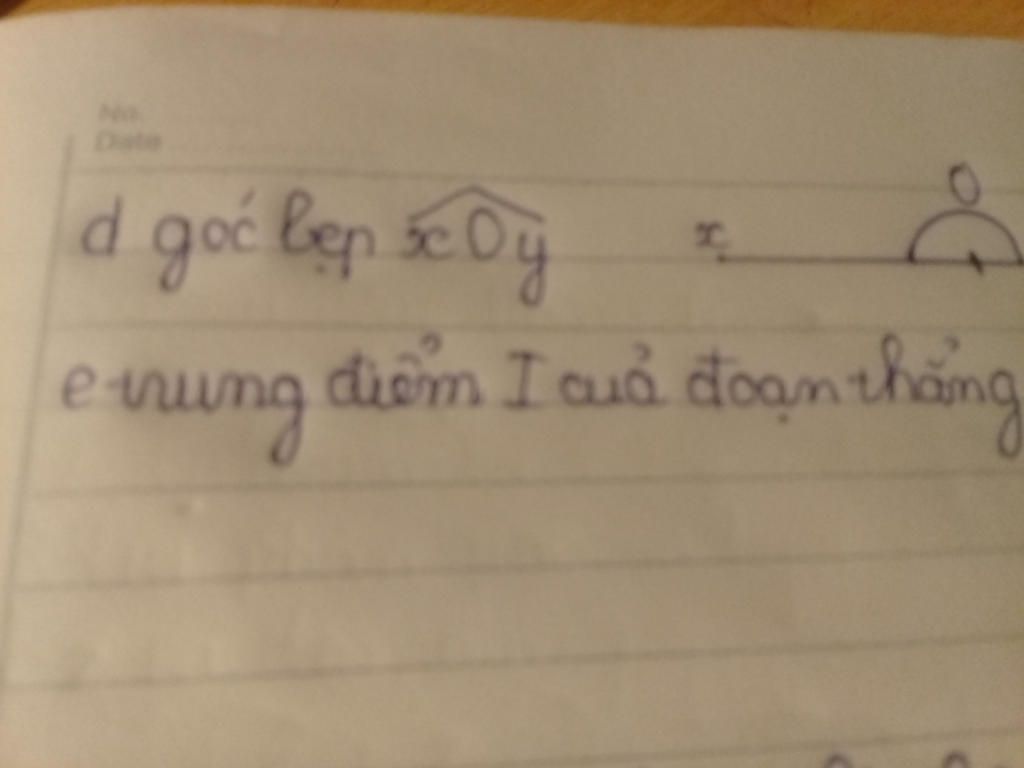 No.
Date
d góc bẹp xOy
x
O
e trung điểm I của đoạn thẳng